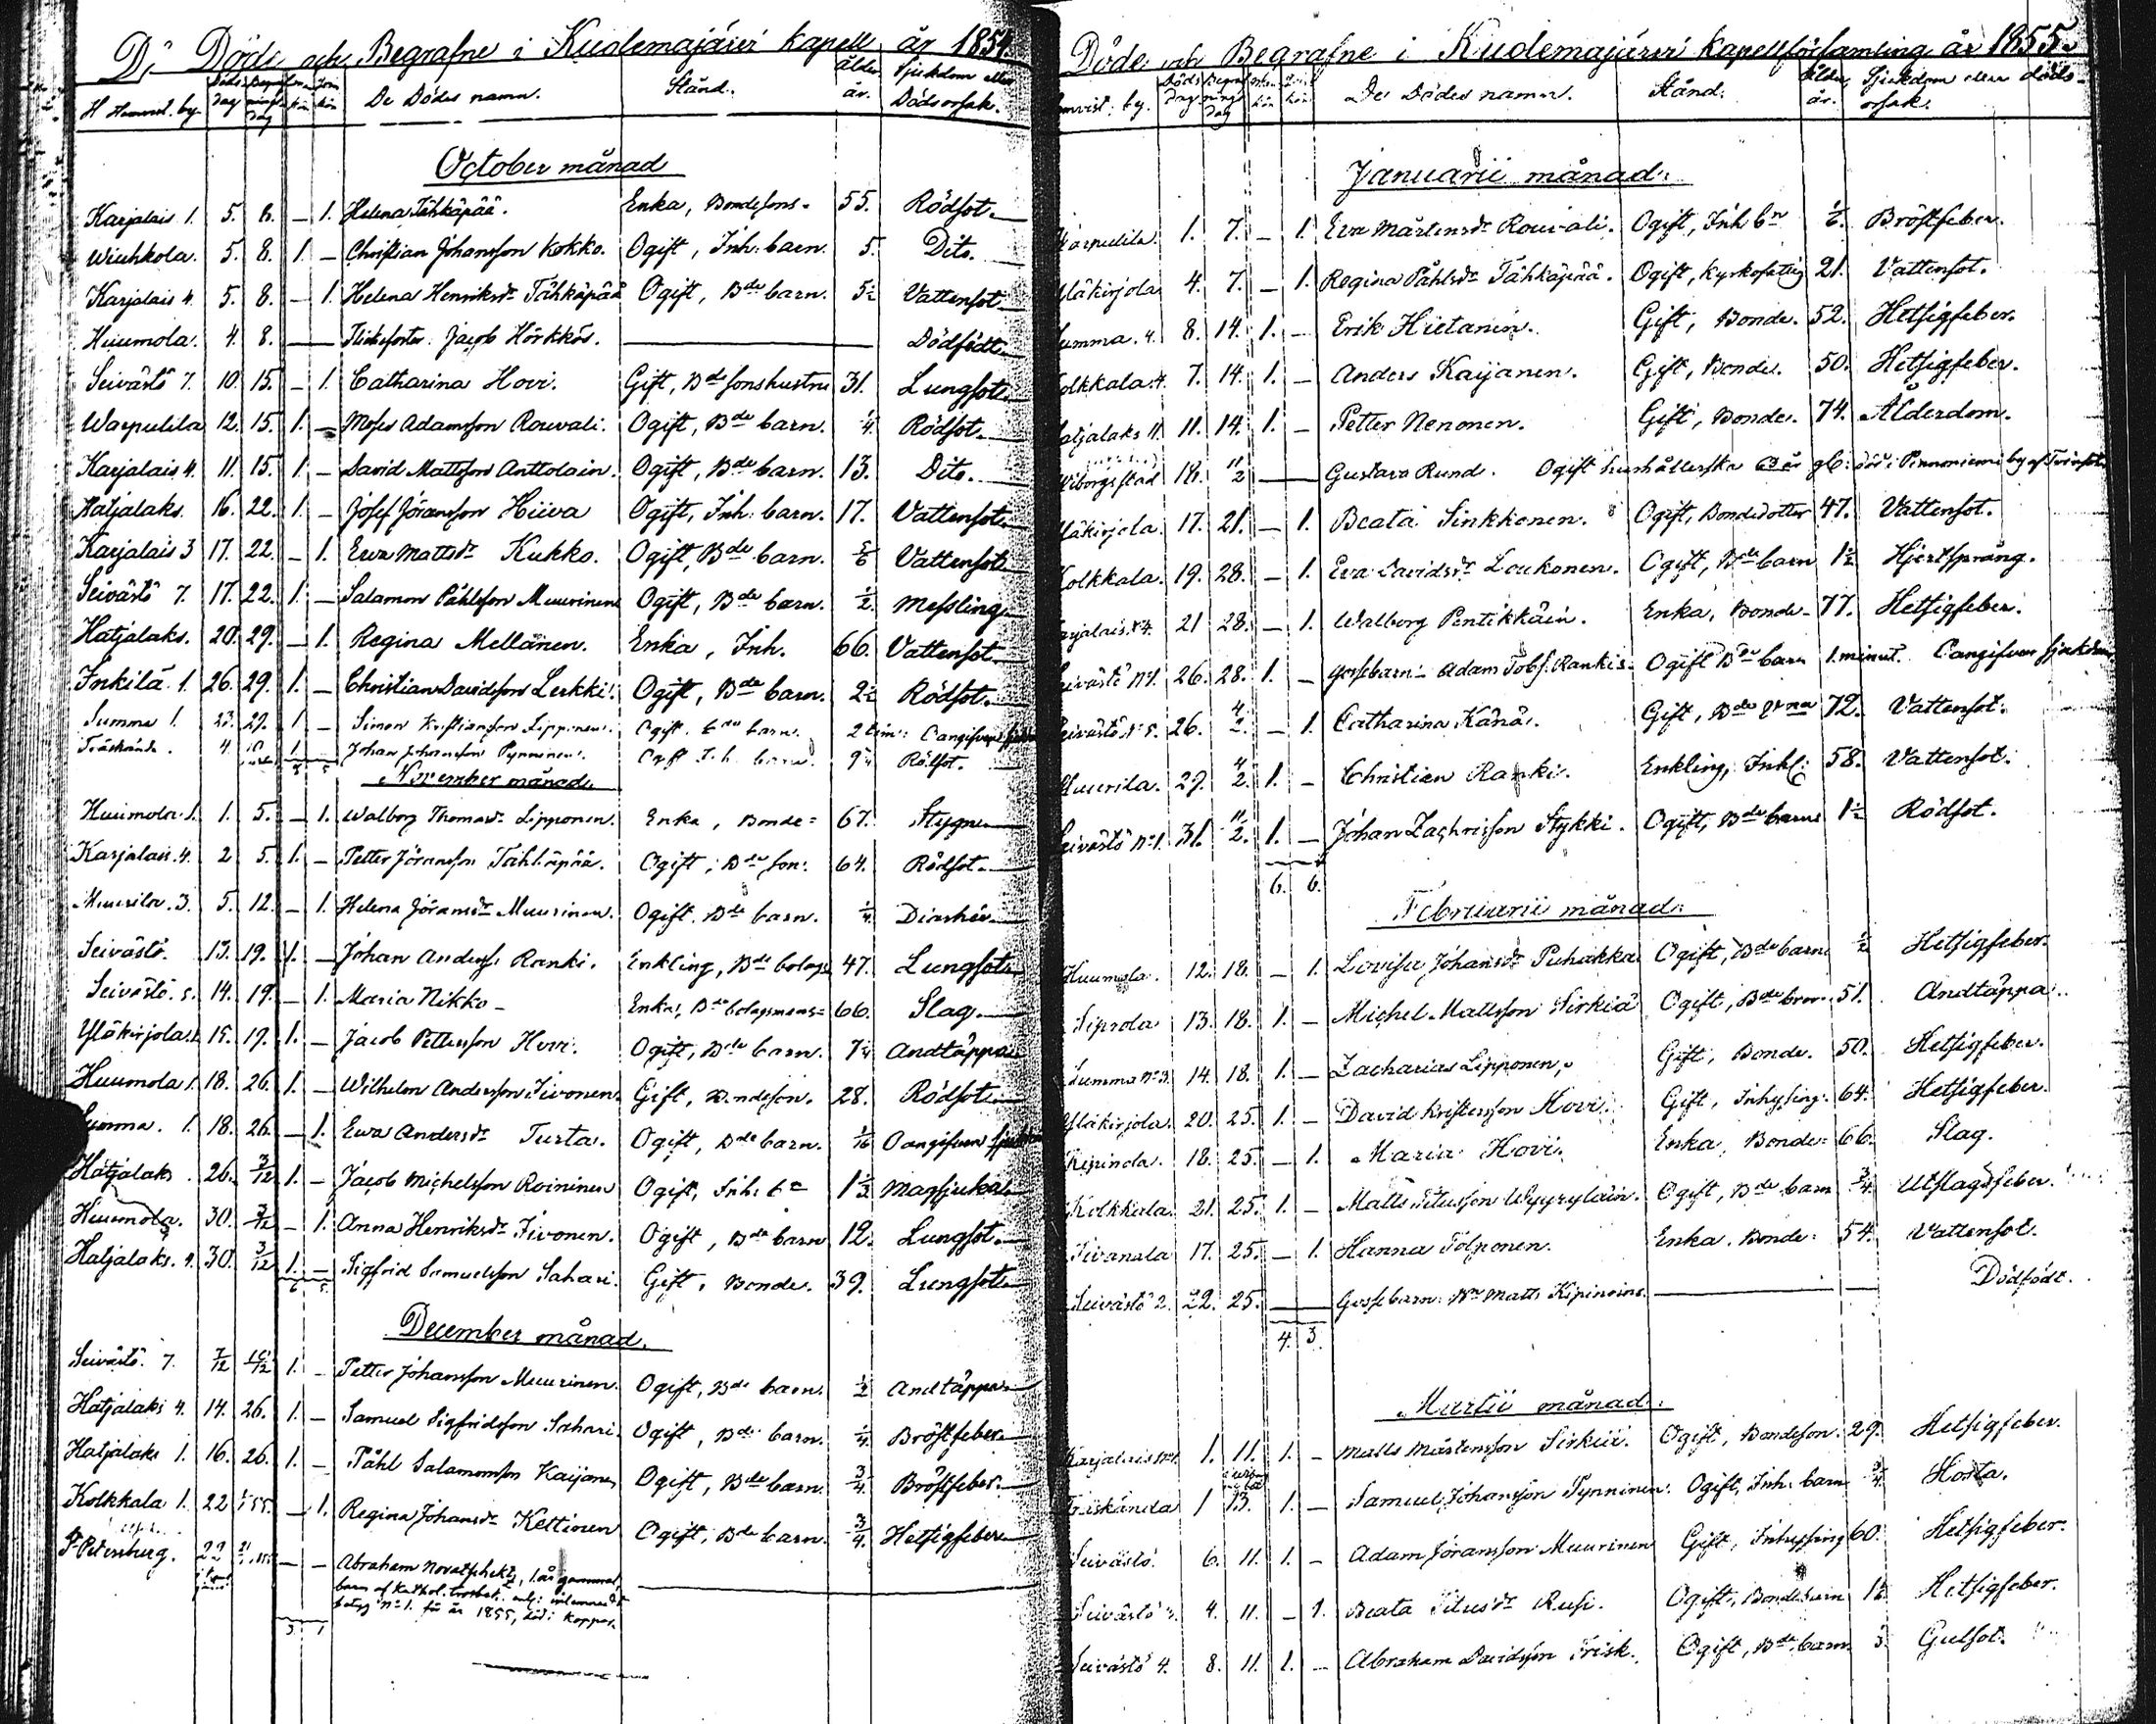 De Döde och Begrafne i Kuolemajärvi kapell år 1854.
Hemvist. by. Döds dag Begrafnings dag De Dödes namn. Stånd. Ålder år. Sjukdom eller Dödsorsak.
October månad
Karjalais 1. 5. 6. — 1. Helena Tähkäpää. Enka, Bondesons- 55. Rödsot.
Wiuhkola. 5. 8. 1. — Christian Johansson Kokko. Ogift, Inh: barn. 5. Dito.
Karjalais 4. 5. 8. — 1. Helena Henriksdr Tähkäpää Ogift, Bde barn. 5½ Vattensot
Huumola. 4. 8. — Jacob Hörkkös. — Dödfödt
Seivästö 7. 10. 15. — 1. Catharina Hovi. Gift, Bde sonshustru 31. Lungsot
Warpulila 12. 15. 1. — Moses Adamsson Rouvali. Ogift, Bde barn. ¼. Rödsot.
Karjalais 4. 11. 15. 1 — David Mattsson Anttolain. Ogift, Bde barn. 13. Dito.
Hatjalaks. 16. 22. 1. — Josef Jöransson Hiiva Ogift, Inh: barn. 17. Vattensot
Karjalais 3 17. 22. — 1. Ewa Mattsdr Kukko. Ogift, Bde barn. 5/6 Vattensot
Seivästö 7. 17. 22. 1. — Salamon Påhlsson Muurinen Ogift, Bde barn. ½. Messling
Hatjalaks. 20. 29. — 1. Regina Mellänen. Enka, Inh. 66. Vattensot
Inkilä 1. 26. 29. 1. — Christian Davidsson Lerkki. Ogift, Bde barn. 2½ Rödsot.
Summa 1. 27. 29. 1 — Simon Kristiansson Lipponen. Ogift. bde barn. 2 tim: Oangifven
Träskända. 4 1 Johan Johansson Pynninen. Ogift Inh. barn. Rödsot.
5 5
November månad.
Huumola. 1. 1. 5. — 1. Walborg Thomasdr Lipponen. Enka, Bonde= 67. Stygn
Karjalais. 4. 2 5. 1. — Petter Jöransson Tähkäpää. Ogift, Bde son: 64. Rödsot.
Muurila. 3. 5. 12. — 1. Helena Jöransdr Muurinen. Ogift. Bde barn. ¼ Diarhé
Seivästö. 13. 19. 1. — Johan Anderss. Ranki. Enkling, Bde bolags 47. Lungsot
Seivästö. 5. 14. 19. — 1. Maria Nikko - Enka, Bde bolagsmans= 66. Slag.
Yläkirjola. 15. 19. 1. — Jacob Pettersson Hovi. Ogift, Bde barn. 7¼ Andtäppa
Huumola 1. 18. 26. 1. — Wilhelm Andersson Sivonen. Gift, Bondeson. 28. Rödsot
Summa. 1. 18. 26. — 1. Ewa Andersdr Turta. Ogift, Bde barn. Oangifven
Hatjalaks. 26. 3/12 1. — Jacob Michelsson Roininen Ogift, Inh: bn 1⅓ Magsjuka
Huumola. 30. 3/12 — 1. Anna Henriksdr Sivonen. Ogift, Bde barn 12. Lungsot.
Hatjalaks. 4. 30. 3/12 1. — Sigfrid Samuelsson Sahari. Gift, Bonde. 39. Lungsot
6 5.
December månad.
Seivästö 7. 7/12 10/12 1. — Petter Johansson Muurinen. Ogift, Bde barn. ½ Andtäppa
Hatjalaks 4. 14. 26. 1. — Samuel Sigfridsson Sahari. Ogift, Bde barn. ¼ Bröstfeber
Hatjalaks 1. 16. 26. 1. — Påhl Salamonsson Kaijanen Ogift, Bde barn. ¾. Bröstfeber.
Kolkkala 1. 22 — 1. Regina Johansdr Kettinen Ogift, Bde barn. ¾. Hetsigfeber
St Petersburg. 22 — — Abraham 1. år gammal,
barn af Kathol.
betyg No 1. för år 1855, död i koppor.
3 1
Döde och Begrafne i Kuolemajärvi kapellförsamling år 1855.
Hemvist: by. Döds dag Begrafnings dag De Dödes namn. Stånd. Ålder, år. Sjukdom eller döds-orsak.
Januarii månad.
Warpulila. 1. 7. — 1. Eva Mårtensdr Rouvali. Ogift, Inh bn Bröstfeber.
Yläkirjola 4. 7. — 1. Regina Påhlsdr Tähkäpää. Ogift, Kyrkofattig 21. Vattensot.
Summa. 4. 8. 14. 1. — Erik Hietanen. Gift, Bonde. 52. Hetsigfeber.
Kolkkala. 4. 7. 14. 1. — Anders Kaijanen. Gift, Bonde. 50. Hetsigfeber.
Hatjalaks 11. 14. 1. — Petter Nenonen. Gift, Bonde. 74. Ålderdom.
Wiborgs stad 18. 11/2 — Gustava Rund. Ogift hushållerska 63 år gl: död i
Yläkirjola. 17. 21. — 1. Beata Sinkkonen. Ogift, Bondedotter 47. Vattensot.
Kolkkala. 19. 28. — 1. Eva Davidsdr Loukonen. Ogift, Bde barn 1½ Hjertsprång.
Karjalais. 4. 21 28. — 1. Walborg Pentikkäin. Enka, Bonde- 77. Hetsigfeber.
Seivästö No 1. 26. 28. 1. — Gossebarn- Adam Tobs. Rankis- Ogift Bde barn 1. minut. Oangifven sjukdom
Seivästö No 5. 26. 4/2. — 1. Catharina Känä. Gift, Bde 72. Vattensot.
Muurila. 29. 4/2. 1. — Christian Ranki. Enkling, Inhs: 58. Vattensot.
Seivästö No 1. 31. 11/2. 1. — Johan Zachrisson Stykki. Ogift, Bde barn 1½ Rödsot.
6. 6.
Februarii månad.
Huumola. 12. 18. — 1. Lovisa Johansdr Puhakka Ogift, Bde barn ½ Hetsigfeber.
Siprola 13. 18. 1. — Michel Mattsson Sirkiä Ogift, Bde bror. 51. Andtäppa.
Summa No 3. 14. 18. 1. — Zacharias Lipponen. Gift, Bonde. 50. Hetsigfeber.
Yläkirjola. 20. 25. 1. — David Kristersson Hovi. Gift, Inhysing. 64. Hetsigfeber.
Kipinola. 18. 25. — 1. Maria Hovi. Enka, Bonde= 66. Slag.
Kolkkala 21. 25. 1. — Matts Titusson Wyyryläin. Ogift, Bde barn ¾. Utslagsfeber.
Sivanala 17. 25. — 1. Hanna Tölponen. Enka. Bonde- 54. Vattensot.
Seivästö 2. 22. 25. — Gossebarn: Matts Kipinoine — Dödfödt.
4. 3.
Martii månad.
Karjalais No 1. 1. 11. 1. — Matts Mårtensson Sirkiä. Ogift, Bondeson. 29. Hetsigfeber.
Träskända 1 13. 1. — Samuel Johansson Pynninen. Ogift, Inh. barn ¾. Hosta.
Seivästö. 6. 11. 1. — Adam Jöransson Muurinen Gift, Inhysing 60. Hetsigfeber.
Seivästö 4. 11. — 1. Beata Titusdr Rusi. Ogift, Bondebarn 1½ Hetsigfeber.
Seivästö 4. 8. 11. 1. — Abraham Davidsson Frisk. Ogift, Bde barn. 3 Gulsot.